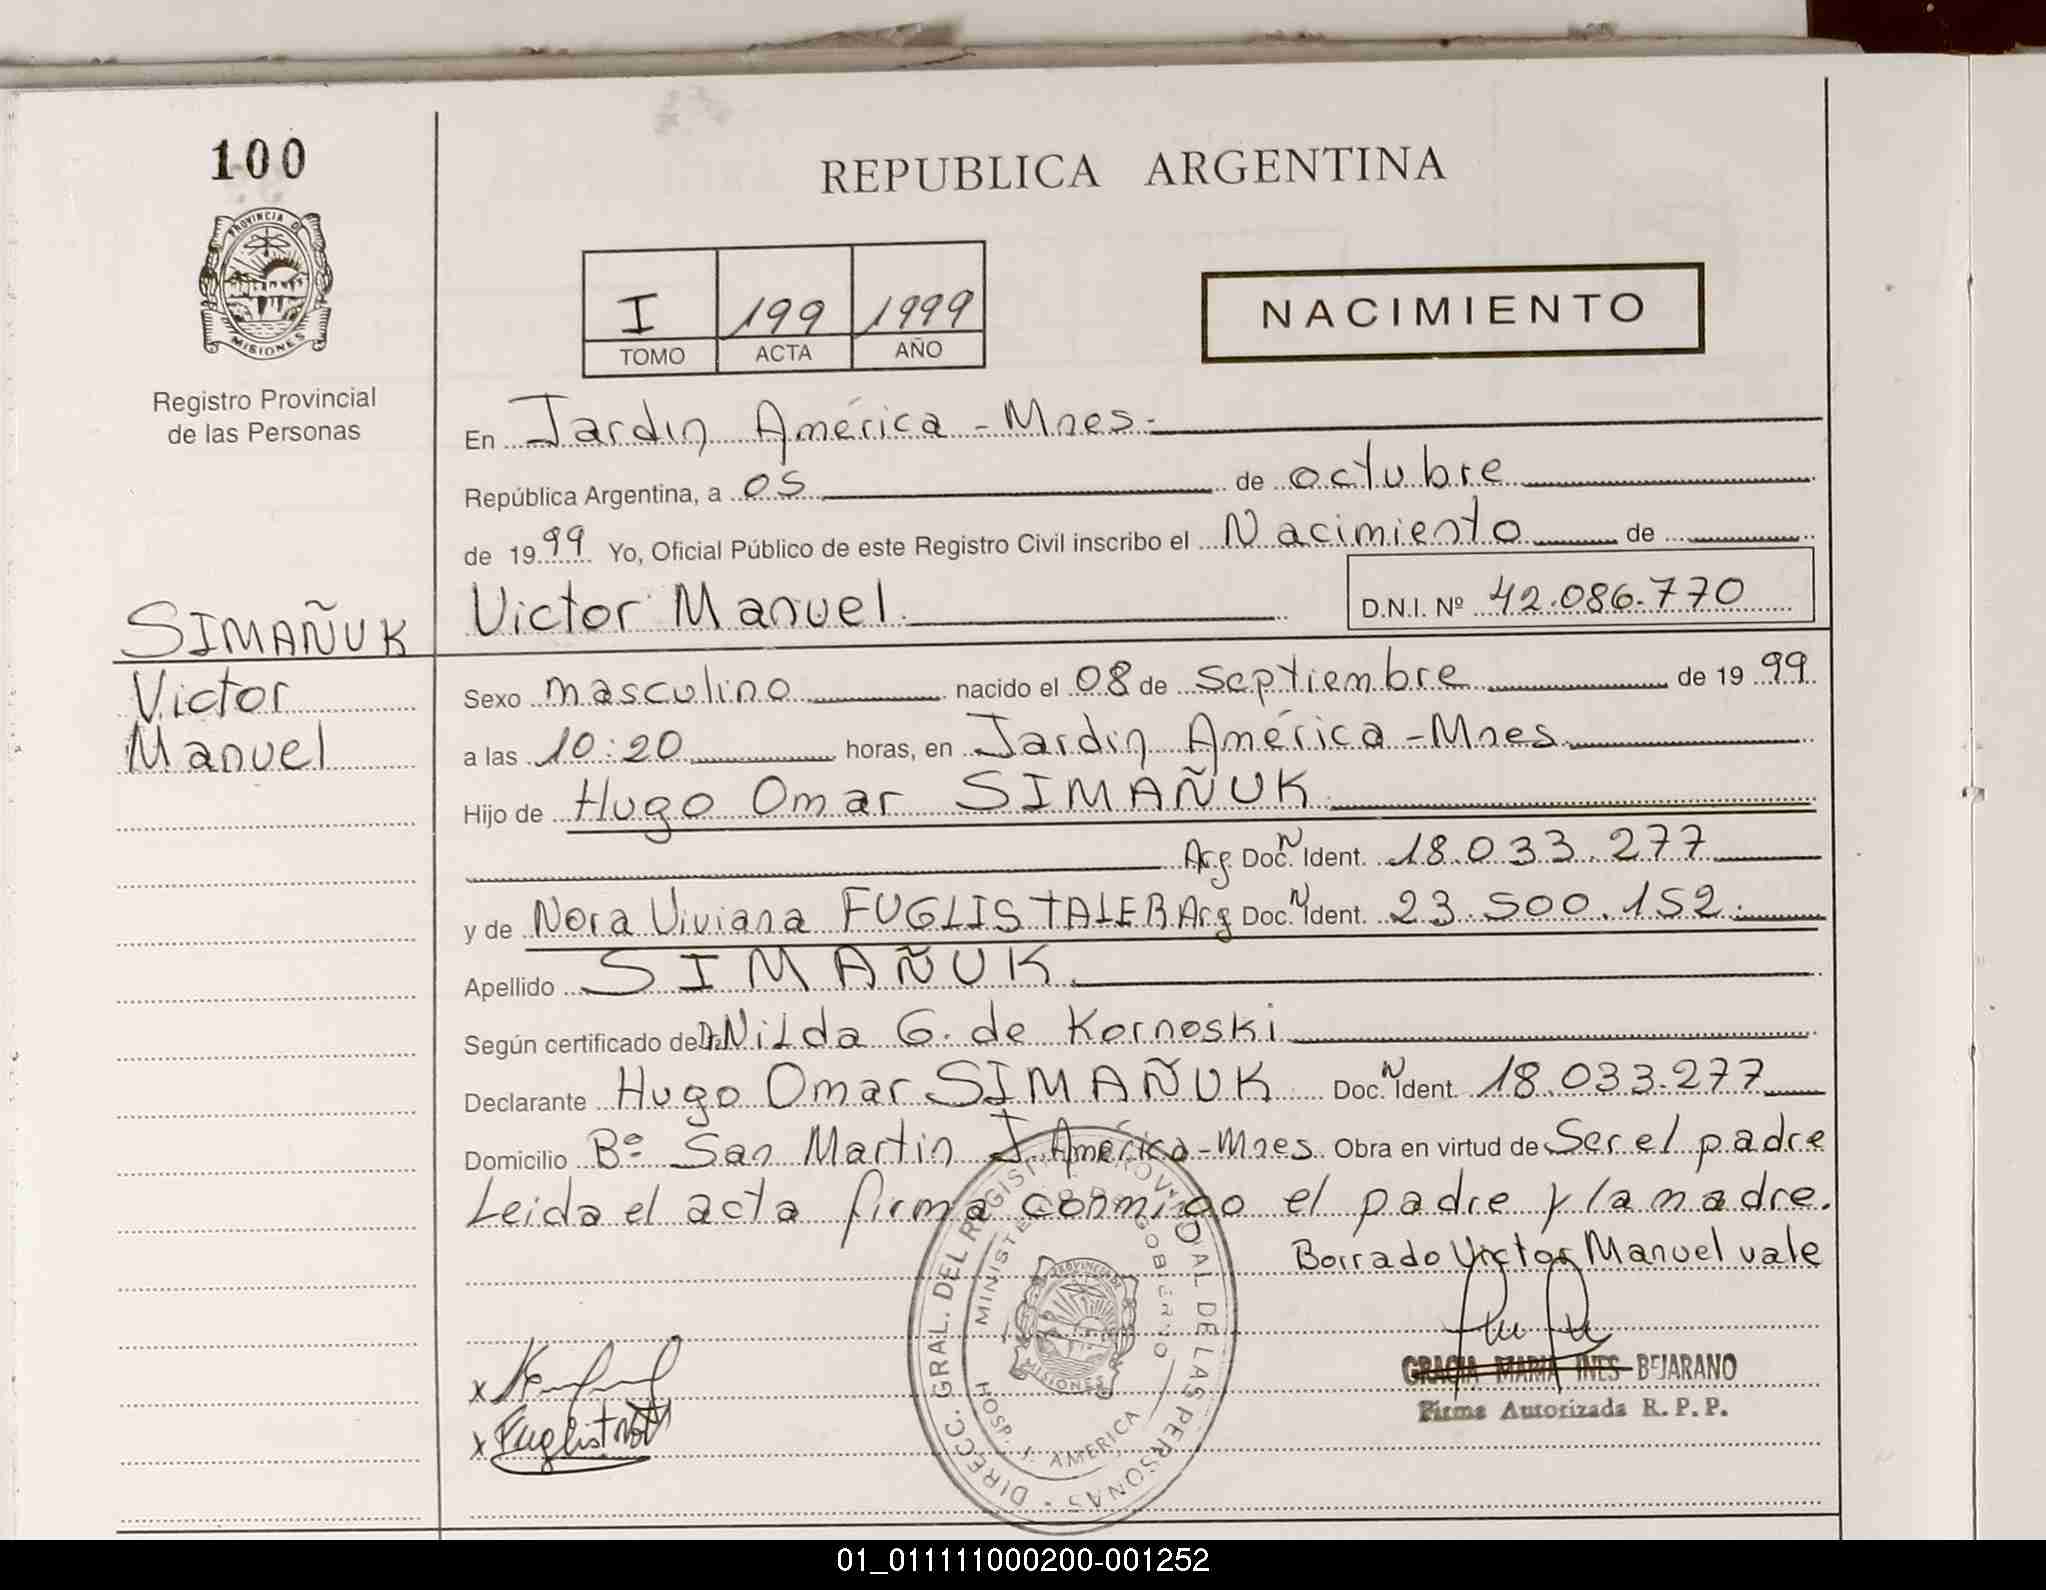 100
REPUBLICA ARGENTINA
PROVINCIA DE
MISIONES
Registro Provincial
de las Personas
I 199 1999
TOMO ACTA AÑO
NACIMIENTO
En Jardin América - Mnes.
República Argentina, a 05 de octubre
de 1999 Yo, Oficial Público de este Registro Civil inscribo el Nacimiento de
Victor Manuel D.N.I. Nº 42.086.770
SIMAÑUK
Victor
Manuel
Sexo masculino nacido el 08 de Septiembre de 1999
a las 10:20 horas, en Jardin América - Mnes.
Hijo de Hugo Omar SIMAÑUK
Arg Doc. N Ident. 18.033.277
y de Nora Viviana FUGLISTALER Arg Doc. N Ident. 23.500.152.
Apellido SIMAÑUK
Según certificado de Dra. Nilda G. de Kornoski
Declarante Hugo Omar SIMAÑUK Doc. N Ident. 18.033.277
Domicilio Bº San Martin J. América - Mnes Obra en virtud de Ser el padre
Leida el acta firma conmigo el padre y la madre.
Borrado Victor Manuel vale
x
x
GRACIA MARIA INES BEJARANO
Firma Autorizada R. P. P.
DIRECC. GRAL. DEL REGISTRO PROVINCIAL DE LAS PERSONAS
MINISTERIO DE GOBIERNO
PROVINCIA DE
MISIONES
HOSP. J. AMERICA
01_011111000200-001252